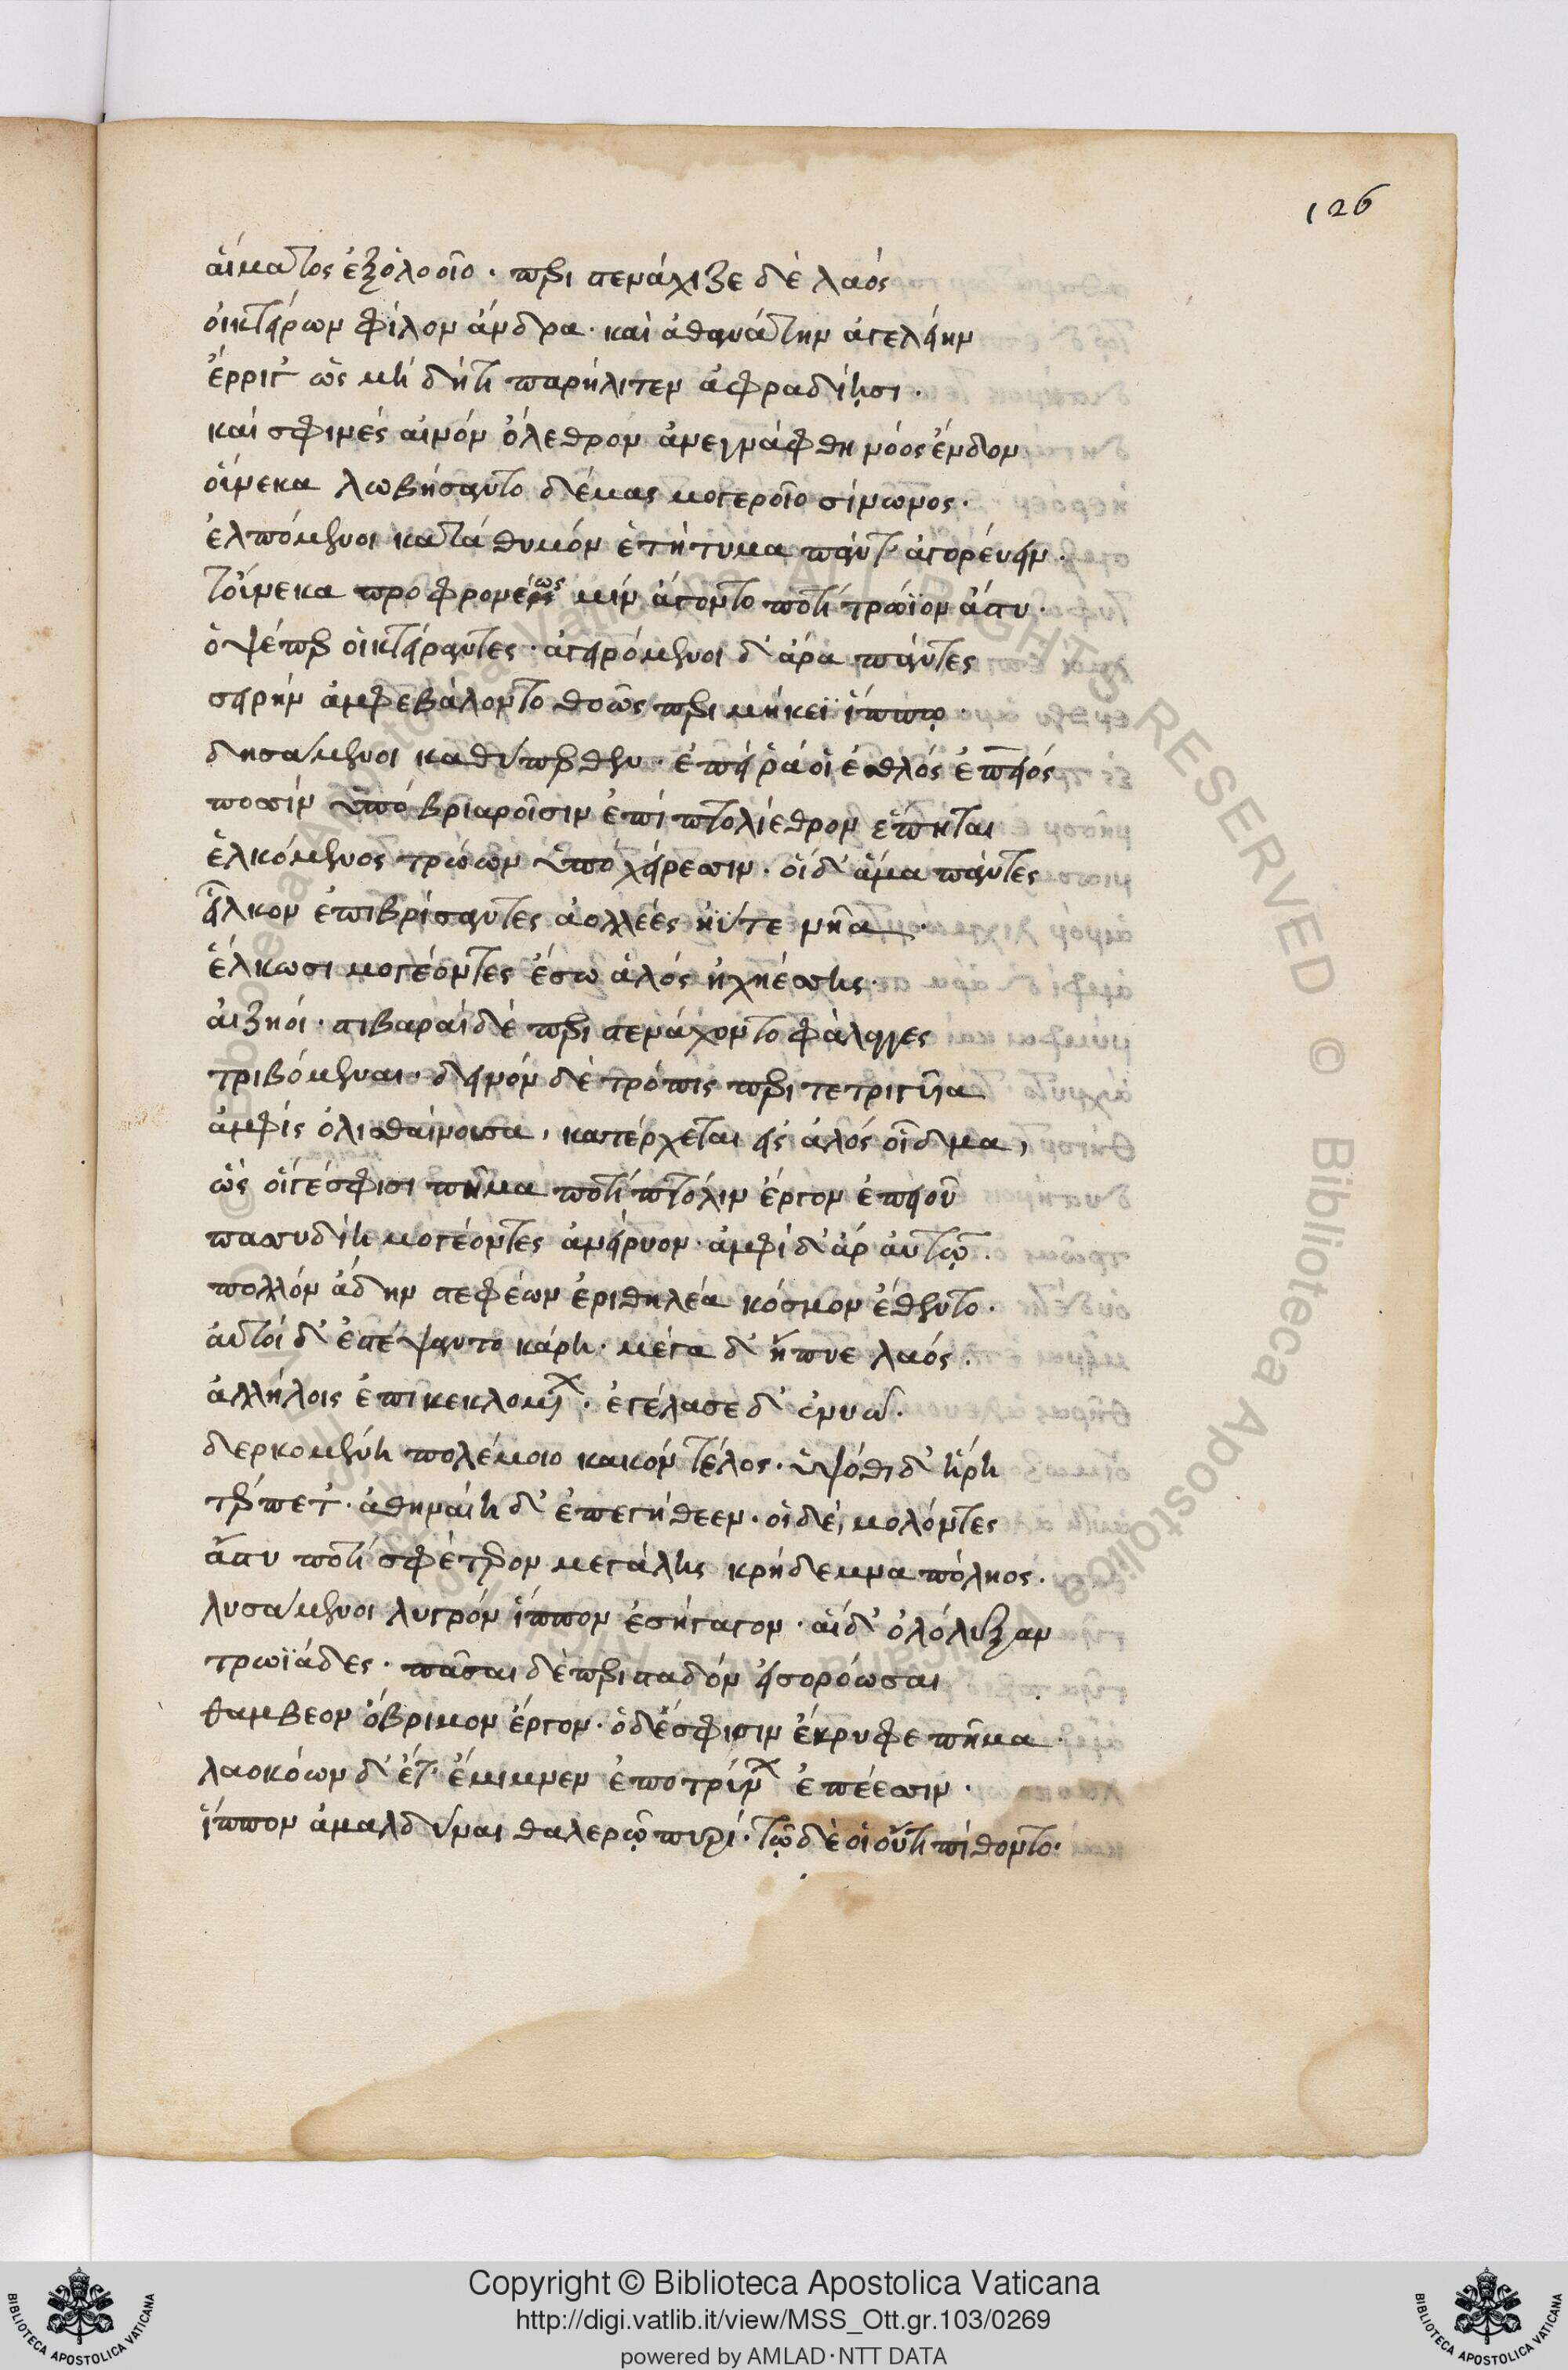 126
αἵματος ἐξ ὀλοοῖο · περιστενάχιζε δὲ λαός
οἰκτείρων φίλον ἄνδρα · καὶ ἀθανάτην ἀγελείην
ἔρριγ' ὡς μὴ δή τι παρήλιτεν ἀφραδίῃσι ·
καί σφιν ἐς αἰνόν ὄλεθρον ἀνεγνάφθη νόος ἔνδον
οὕνεκα λωβήσαντο δέμας μογεροῖο σίνωνος ·
ἐλπόμενοι κατά θυμόν ἐτήτυμα πάντ' ἀγορεύειν ·
τοὔνεκα προφρονέως μιν ἄγοντο ποτὶ τρώϊον ἄστυ ·
ὀψέ περ οἰκτείραντες · ἀγειρόμενοι δ' ἄρα πάντες
σειρήν ἀμφεβάλοντο θοῶς περιμήκεϊ ἵππῳ ·
δησάμενοι καθύπερθεν · ἐπεί ῥά οἱ ἐσθλός ἐπειός
ποσσίν ὑπό βριαροῖσιν ἐπί πτολίεθρον ἕπηται
ἑλκόμενος τρώων ὑπο χείρεσσιν · οἱ δ' ἅμα πάντες
εἷλκον ἐπιβρίσαντες ἀολλέες ἠύτε νῆα ·
ἕλκωσι μογέοντες ἔσω ἁλός ἠχηέσσης ·
αἰζηοί · στιβαραί δὲ περιστενάχοντο φάλαγγες
τριβόμεναι · δεινόν δὲ τρόπις περιτετριγυῖα
ἀμφίς ὀλισθαίνουσα, κατέρχεται εἰς ἁλός οἶδμα,
ὣς οἵ γέ σφισι πῆμα ποτί πτόλιν ἔργον ἐπειοῦ
πασσυδίῃ μογέοντες ἀνείρυον · ἀμφί δ' ἄρ αὐτῷ ·
πολλόν ἄδην στεφέων ἐριθηλέα κόσμον ἔθεντο ·
αὐτοί δ' ἐστέψαντο κάρη · μέγα δ' ἤπυε λαός ·
ἀλλήλοις ἐπικεκλομένων · ἐγέλασε δ' ἐνυώ ·
δερκομένη πολέμοιο κακόν τέλος · ὑψόθι δ' ἥρη
τέρπετ' · ἀθηναίη δ' ἐπεγήθεεν · οἱ δέ, μολόντες
ἄστυ ποτί σφέτερον μεγάλης κρήδεμνα πόληος ·
λυσάμενοι λυγρόν ἵππον ἐσήγαγον · αἱ δ' ὀλόλυξαν
τρωϊάδες · πᾶσαι δὲ περισταδόν εἰσορόωσαι
θαμβεον ὄβριμον ἔργον · ὁ δέ σφισιν ἔκρυφε πῆμα ·
λαοκόων δ' ἔτ' ἔμιμνεν ἐποτρύνων ἐπέεσσιν ·
ἵππον ἀμαλδύναι θαλερῷ πυρί · τῷ δὲ οἱ οὔτι πίθοντο ·
© Biblioteca Apostolica Vaticana ALL RIGHTS RESERVED
Copyright © Biblioteca Apostolica Vaticana
http://digi.vatlib.it/view/MSS_Ott.gr.103/0269
powered by AMLAD·NTT DATA
BIBLIOTECA APOSTOLICA VATICANA
BIBLIOTECA APOSTOLICA VATICANA